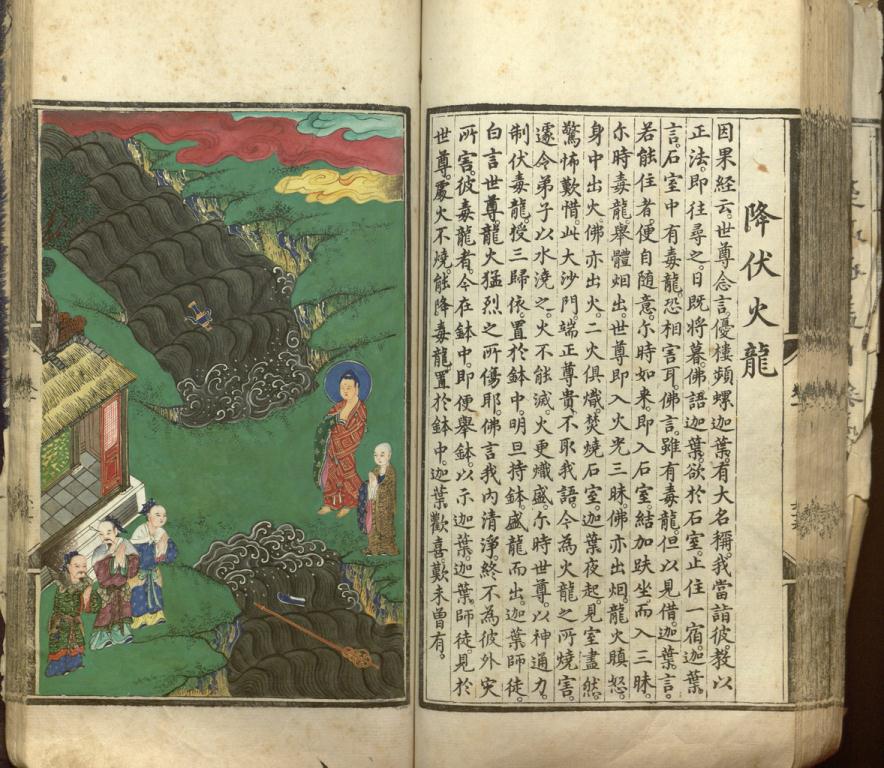 降伏火龍
因果經云。世尊念言。優樓頻螺迦葉。有大名稱。我當詣彼。教以
正法。即往尋之。日既將暮。佛語迦葉。欲於石室。止住一宿。迦葉
言。石室中有毒龍。恐相害耳。佛言。雖有毒龍。但以見借。迦葉言。
若能住者。便自隨意。尒時如来。即入石室。結加趺坐。而入三昧。
尒時毒龍。舉體烟出。世尊即入火光三昧。佛亦出烟。龍火瞋怒。
身中出火。佛亦出火。二火俱熾。焚燒石室。迦葉夜起。見室盡然。
驚怖歎惜。此大沙門。端正尊貴。不取我語。今為火龍之所燒害。
遽令弟子。以水澆之。火不能滅。火更熾盛。尒時世尊。以神通力。
制伏毒龍。授三歸依。置於鉢中。明旦持鉢。盛龍而出。迦葉師徒。
白言世尊。龍火猛烈。之所傷耶。佛言我內清淨。終不為彼外灾
所害。彼毒龍者。今在鉢中。即便舉鉢。以示迦葉。迦葉師徒。見於
世尊。處火不燒。能降毒龍。置於鉢中。迦葉歡喜。歎未曾有。